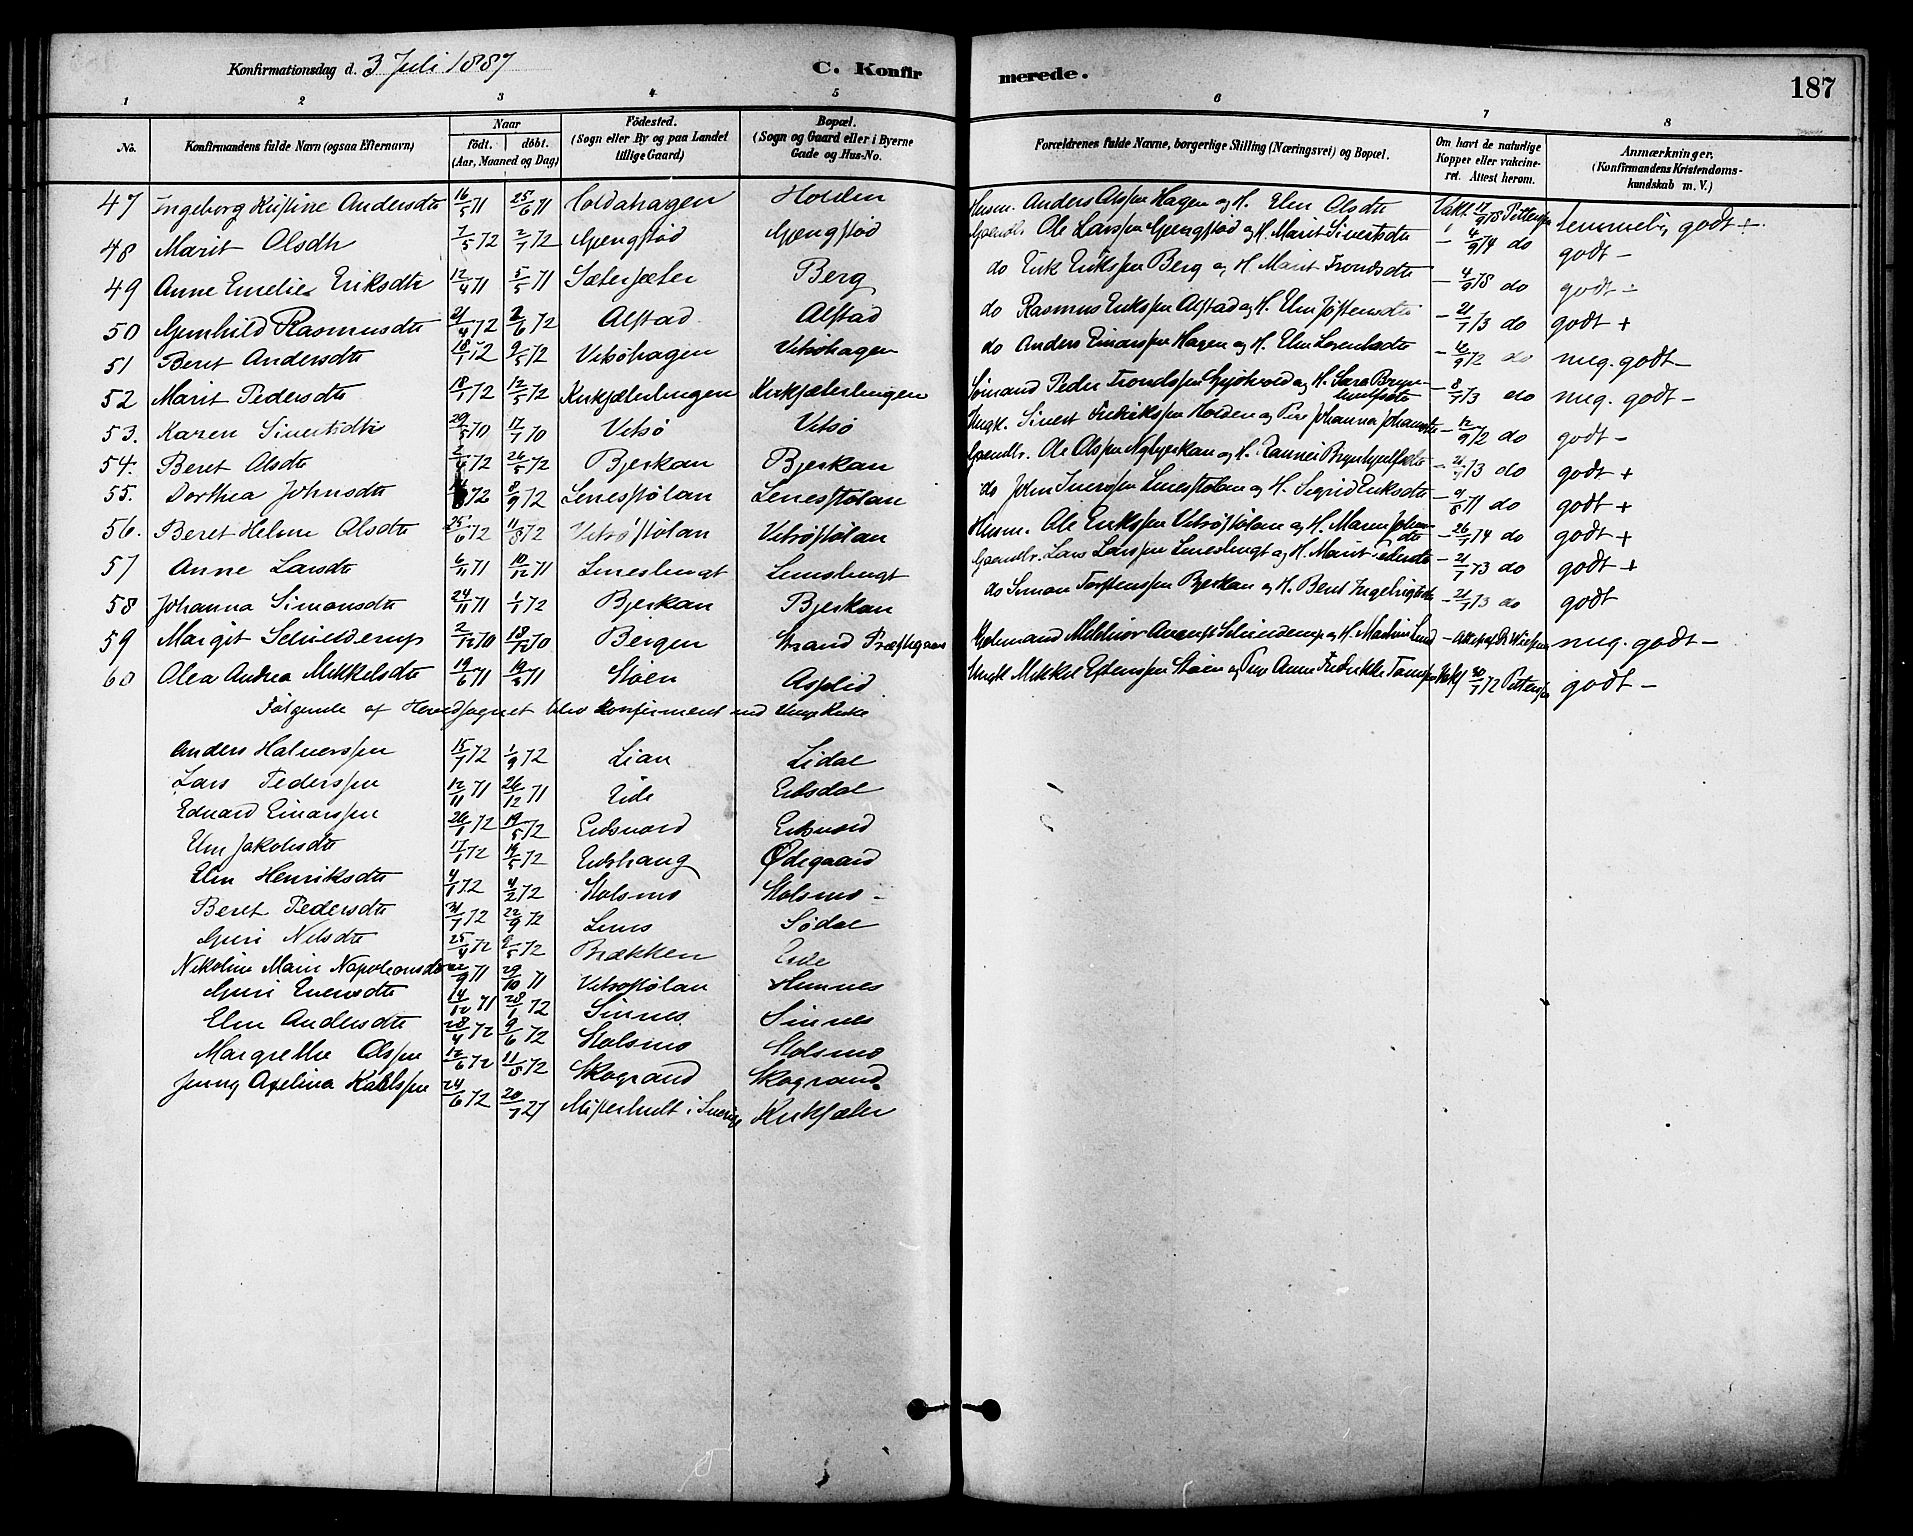 Konfirmationsdag d. 3 Juli 1887 C. Konfirmerede. 187
1 2 3 4 5 6 7 8
No. Konfirmandens fulde Navn (ogsaa Efternavn) Naar födt. döbt. (Aar, Maaned og Dag) Födested. (Sogn eller By og paa Landet tillige Gaard) Bopæl. (Sogn og Gaard eller i Byerne Gade og Hus-No. Forældrenes fulde Navne, borgerlige Stilling (Næringsvei) og Bopæl. Om havt de naturlige Kopper eller vakcineret. Attest herom. Anmærkninger. (Konfirmandens Kristendomskundskab m. V.)
47 Ingeborg Kristine Andersdtr 16/5 71 25/6 71 Holdahagen Holden Husm. Anders Olssen Hagen og H. Elen Olsdtr Vakc. temmelig godt +
48 Marit Olsdtr 7/5 72 2/7 72 Gjengstød Gjengstød Gaardbr. Ole Larssen Gjengstød og H. Marit Sivertsdtr - 4/9 74 do godt -
49 Anne Emelie Eriksdtr 12/4 71 5/5 71 Sætersæter Berg do Erik Erikssen Berg og H. Marit Trondsdtr - 4/9 78 do godt -
50 Gunhild Rasmusdtr 21/4 72 2/6 72 Alstad Alstad do Rasmus Erikssen Alstad og H. Elen Jostensdtr - 21/7 73 do godt +
51 Beret Andersdtr 18/1 72 9/5 72 Vitsøhagen Vitsøhagen do Anders Einarssen Hagen og H. Elen Lorentsdtr do meg. godt -
52 Marit Pedersdtr 18/1 72 12/5 72 Kirksæterhengen Kirksæterhengen Sømand Peder Trondssen og H. Sara Brynhulfsdtr - 8/7 73 do meg. godt -
53. Karen Sivertsdtr 29/5 70 17/7 70 Vitsø Vitsø Ungk. Sivert Fredrikssen Holden og Pige Johanna Johansdtr - 12/9 72 do godt -
54. Beret Olsdtr 2/4 72 26/5 72 Bjerkan Bjerkan Gaardbr. Ole Olssen Nybjerkan og H. Rannei Brynhjulfsdtr do godt +
55. Dorthea Johnsdtr 72 8/9 72 Lenesstølan Lenesstølan do John Iverssen Lenesstølan og H. Sigrid Eriksdtr do godt +
56. Beret Helene Olsdtr 25/6 72 11/8 72 Vitsøstølan Vitsøstølan Husm. Ole Erikssen Vitsøstølan og H. Maren Johnsdtr - 26/7 74 do godt +
57 Anne Larsdtr 6/11 71 10/12 71 Leneslengt Leneslengt Gaardbr. Lars Larssen Leneslengt og H. Marit Pedersdtr - 21/7 73 do godt +
58 Johanna Simonsdtr 24/11 71 1/1 72 Bjerkan Bjerkan do Simon Torstenssen Bjerkan og H. Beret Ingebrigtsdtr - 21/7 73 do godt
59 Margit Schielderup 2/12 70 18/12 70 Bergen Strand Præstegaard H. Attest af Dr meg. godt -
60 Olea Andrea Mikkelsdtr 19/6 71 19/5 71 Støen Asplid Ungk. Mikkel Estenssen Støen og Anne Fredrikke Vakc. godt -
Følgende af Hovedsognet blev konfirmeret ved Vinje Kirke
Anders Halverssen 15/7 72 1/9 72 Lian Lidal
Lars Pederssen 12/11 71 26/12 71 Eide Eidsdal
Edvard Einarssen 26/1 72 19/5 72 Eidsnord Eidsnord
Elen Jakobsdtr 17/1 72 19/5 72 Eidshaug Ødegaard
Elen Henriksdtr 4/1 72 4/2 72 Stolsmo Stolsmo -
Beret Pedersdtr 31/7 72 22/9 72 Lenes Sødal
Guri Nilsdtr 25/4 72 2/5 72 Brækken Eide
Nikoline Marie Napoleonsdtr 22/9 71 29/10 71 Vitsøstølan Hemnes
Guri Evensdtr 14/12 71 28/1 72 Sinnes Sinnes
Elen Andersdtr 28/4 72 9/6 72 Stolsmo Stolsmo
Margrethe Olssen 12/6 72 11/8 72 Skogrand Skogrand
Jenny Axelina Karlssen 24/6 72 20/7 Misterhult i Sverige Kirksæter